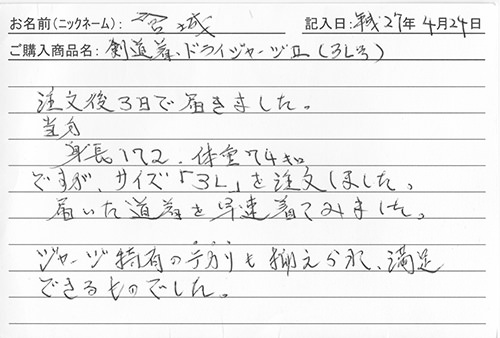 お名前(ニックネーム): 宮城 記入日: 平成27年4月24日
ご購入商品名: 剣道着、ドライジャージⅡ(3L号)
注文後3日で届きました。
当方
身長172.体重74キロ
ですが、サイズ「3L」を注文しました。
届いた道着を早速着てみました。
ジャージ特有のテカリも抑えられ、満足
できるものでした。